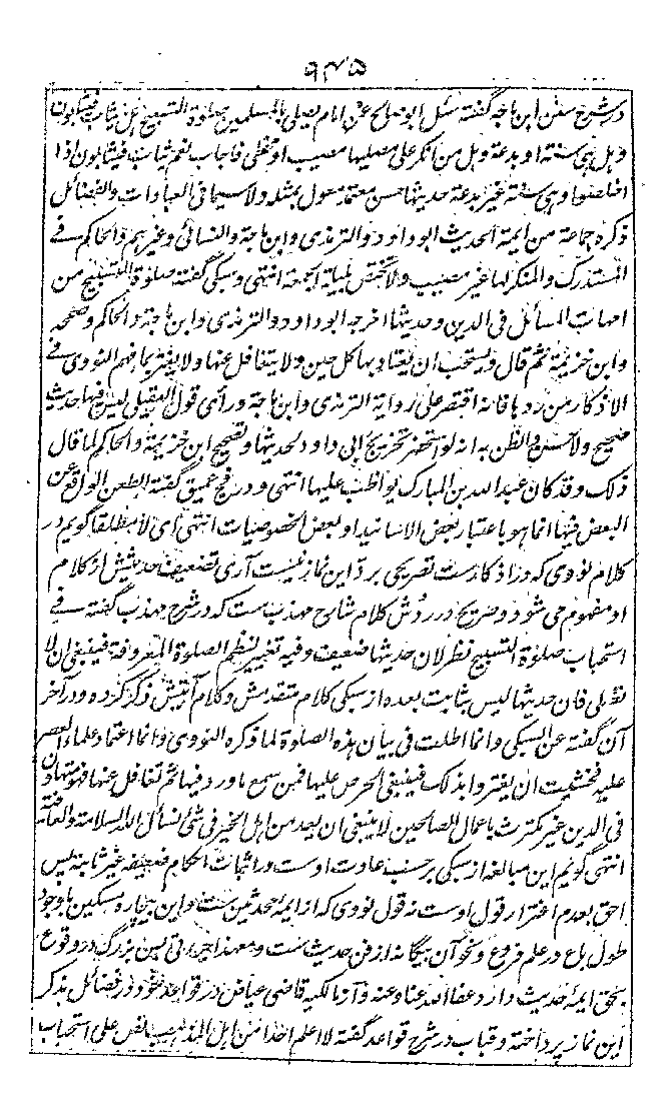 ۹۴۵
در شرح سنن ابن ماجه گفته سئل ابو صالح عن امام یصلی بالمسلمین صلوة التسبیح هل یثاب فیثابون
و هل هی سنة او بدعة و هل من انکر علی مصلیها مصیب او مخطی فاجاب نعم یثاب فیثابون اذا
اخلصوا و هی سنة غیر بدعة حدیثها حسن معتمد معمول بمثله ولاسیما فی العبادات والفضائل
ذکره جماعة من ایمة الحدیث ابو داود والترمذی وابن ماجة والنسائی وغیرهم والحاکم فے
المستدرک والمنکر لها غیر مصیب ولا تختص بلیلة الجمعة انتهی وسبکی گفته صلوة التسبیح من
امهات المسائل فی الدین وحدیثها اخرجه ابو داود والترمذی وابن ماجة والحاکم وصححه
وابن خزیمة ثم قال ویستحب ان یعتاد بها کل حین ولا یتغافل عنها ولا یغتر بما فهم النووی فے
الاذکار من ردها فانه اقتصر علی روایة الترمذی وابن ماجة ورأی قول العقیلی لیس فیها حدیث
صحیح ولا حسن والظن به انه لو استحضر تخریج ابی داود لحدیثها وتصحیح ابن خزیمة والحاکم لما قال
ذلک وقد کان عبدالله بن المبارک یواظب علیها انتهی و در فج عمیق گفته الطعن الواقع عن
البعض فیها انما هو باعتبار بعض الاسانید او بعض الخصوصیات انتهی ای لا مطلقا گویم در
کلام نووی که در اذکارست تصریحی برد این نماز نیست آری تضعیف حدیثش از کلام
او مفهوم می شود و صریح در ردش کلام شارح مهذب ست که در شرح مهذب گفته فے
استحباب صلوة التسبیح نظر لان حدیثها ضعیف وفیه تغییر لنظم الصلوة المعروفة فینبغی ان لا
تصلی فان حدیثها لیس بثابت بعده از سبکی کلام متقدمش وکلام آتیش ذکر کرده و در آخر
آن گفته عن السبکی وانما اطلت فی بیان هذه الصلوة لما ذکره النووی وانما اعتماد علماء العصر
علیه فخشیت ان یغتروا بذلک فینبغی الحرص علیها فمن سمع ما ورد فیها ثم تغافل عنها فهو متهاون
فی الدین غیر مکترث باعمال الصالحین لا ینبغی ان یعد من اهل الخیر فی شئ نسال الله السلامة والعافیة
انتهی گویم این مبالغه از سبکی بر حسب عادت اوست و اثبات احکام ضعیفه غیر ثابته پس
احق بعدم اغترار قول اوست نه قول نووی که از ایمۂ محدثین ست واین بیچاره مسکین باوجود
طول باع در علم فروع ونحو آن بیگانه از فن حدیث ست ومعهذا جرأتی بس بزرگ در وقوع
بحق ایمۂ حدیث دارد عفا الله عنا وعنه و از مالکیه قاضی عیاض در قواعد خود در فضائل بذکر
این نماز پرداخته وقباب در شرح قواعد گفته لا اعلم احدا من اهل المذهب نص علی استحباب